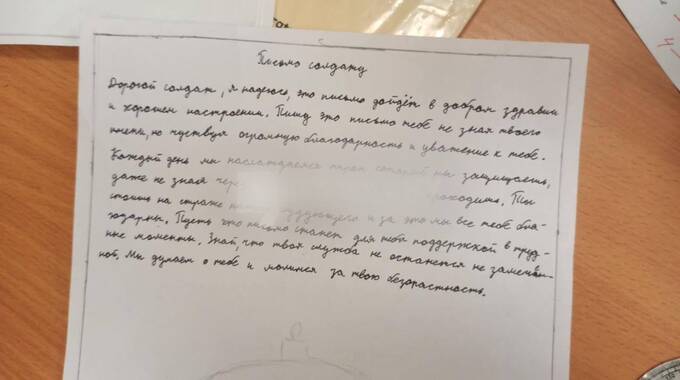 Письмо солдату
Дорогой солдат, я надеюсь, это письмо дойдёт в добром здравии
и хорошем настроении. Пишу это письмо тебе не зная твоего
имени, но чувствуя огромную благодарность и уважение к тебе.
Каждый день мы наслаждаемся который ты защищаешь,
даже не зная чер проходишь. Ты
стоишь на страже будующего и за это мы все тебе бла-
годарны. Пусть это письмо станет для тебя поддержкой в труд-
ные моменты. Знай, что твоя служба не останется не замечен-
ной, Мы думаем о тебе и молимся за твою безорастность.